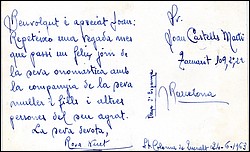 Benvolgut i apreciat Joan:
Repeteixo una vegada més
que passi un feliç jorn de
la seva onomastica amb
la companyia de la seva
muller i fills i altres
persones del seu agrat.
La seva devota,
Rosa
Sr.
Joan Castells Martí
Zamant 109, 2º 2ª
Barcelona
Sta. Coloma de Queralt 24-6-